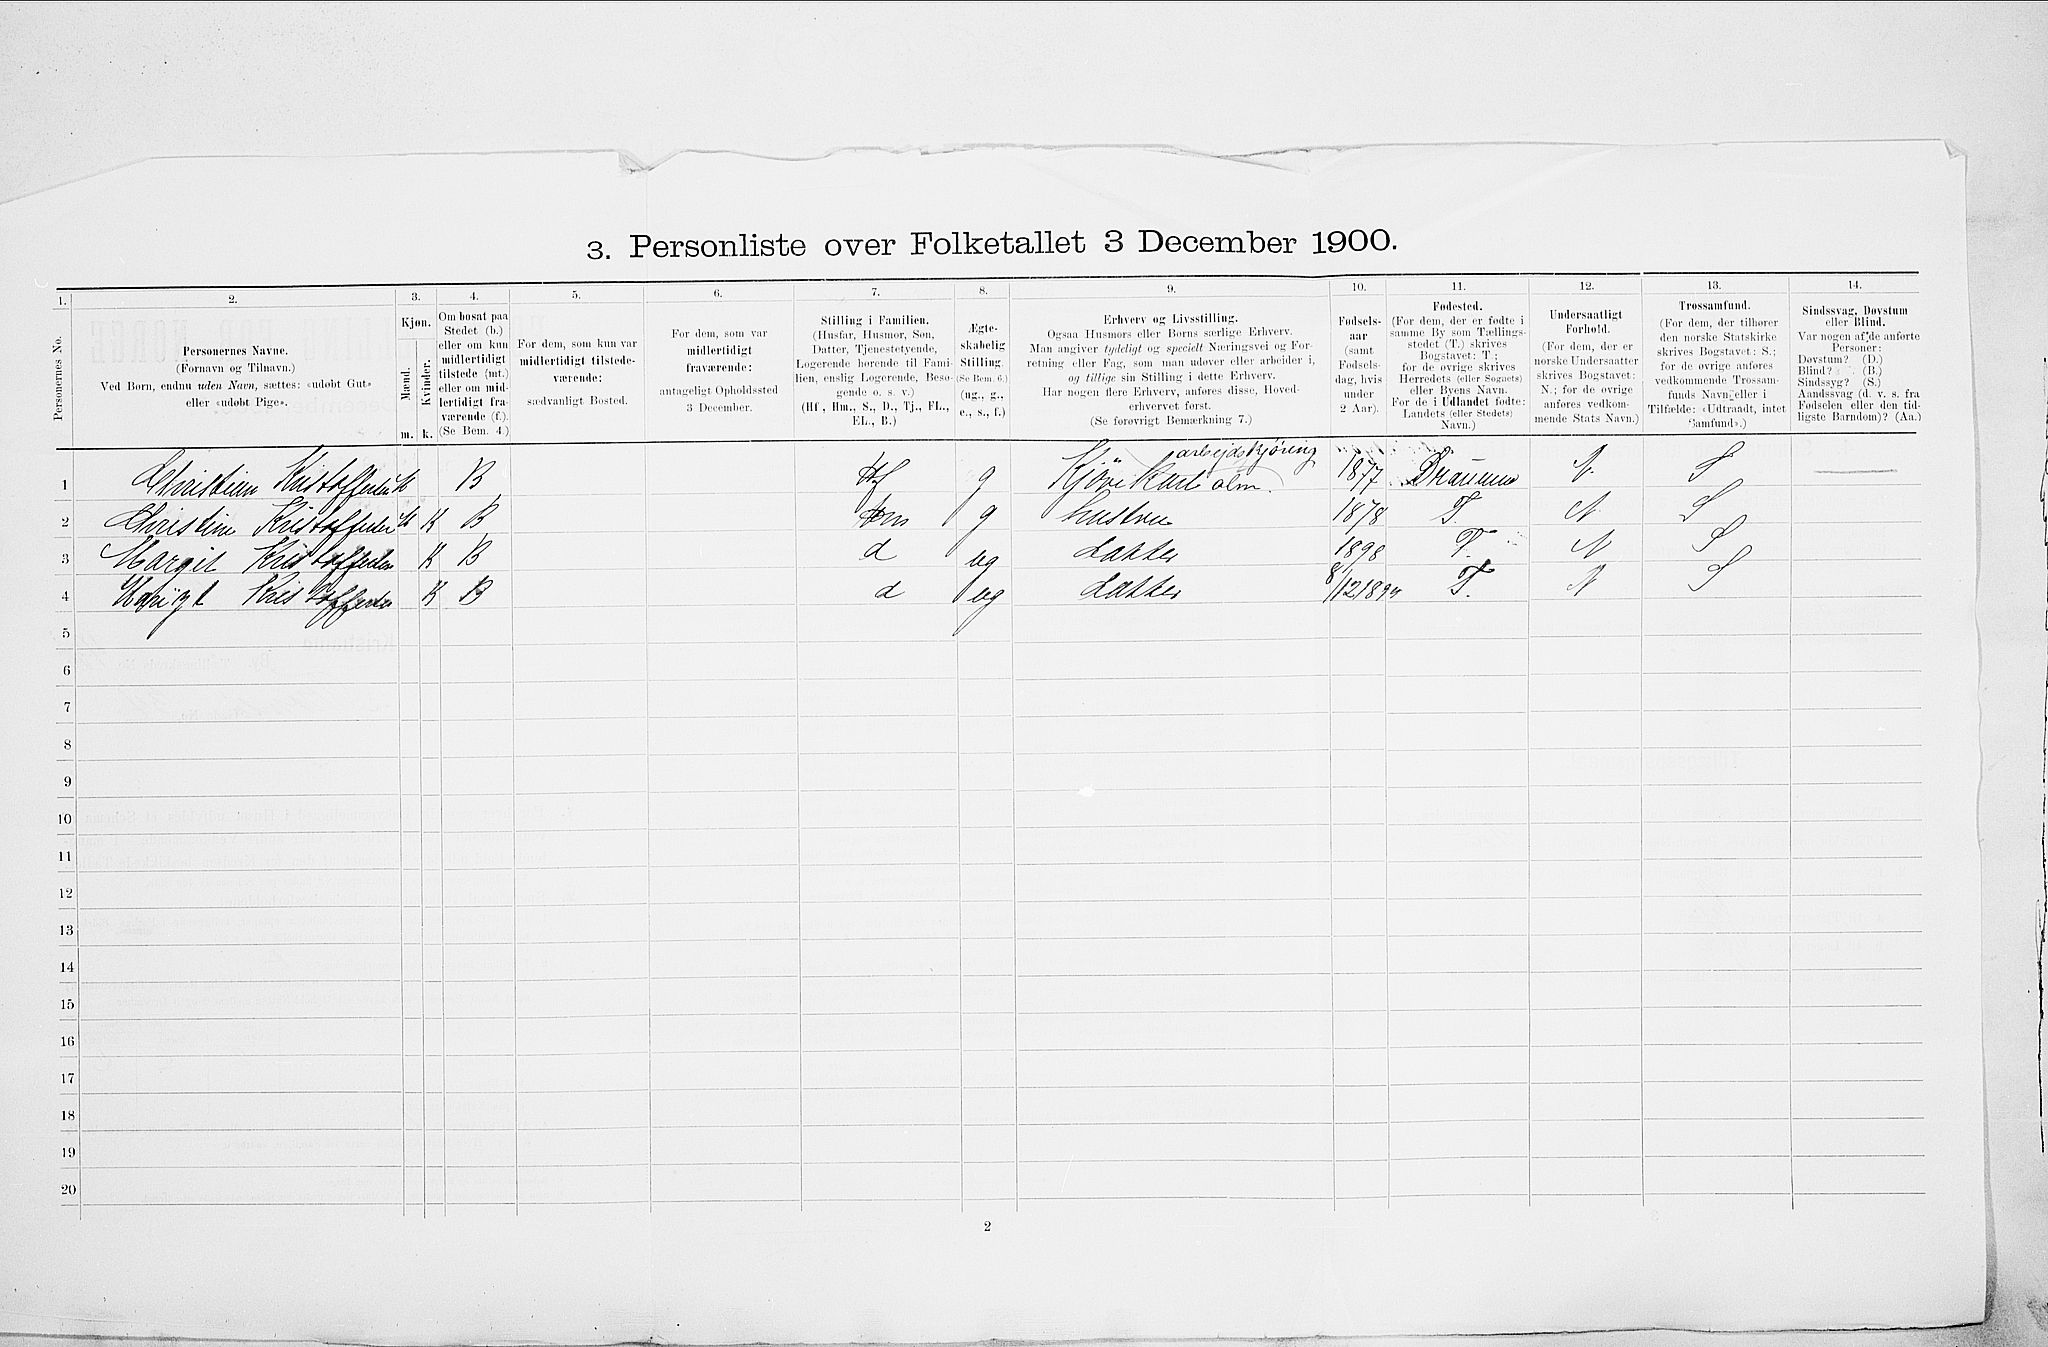 3. Personliste over Folketallet 3 December 1900.
1. 2. 3. 4. 5. 6. 7. 8. 9. 10. 11. 12. 13. 14.
Personernes No.
Personernes Navne.
(Fornavn og Tilnavn.)
Ved Børn, endnu uden Navn, sættes: «udøbt Gut»
eller «udøbt Pige».
Kjøn.
Mænd.
Kvinder.
m. k.
Om bosat paa
Stedet (b.)
eller om kun
midlertidigt
tilstede (mt.)
eller om mid-
lertidigt fra-
værende (f.)
(Se Bem. 4.)
For dem, som kun var
midlertidigt tilstede-
værende:
sædvanligt Bosted.
For dem, som var
midlertidigt
fraværende:
antageligt Opholdssted
3 December.
Stilling i Familien.
(Husfar, Husmor, Søn,
Datter, Tjenestetyende,
Logerende hørende til Fami-
lien, enslig Logerende, Besø-
gende o. s. v.)
(Hf., Hm., S., D., Tj., FL.,
EL., B.)
Ægte-
skabelig
Stilling.
(Se Bem. 6.)
(ug., g.,
e., s., f.)
Erhverv og Livsstilling.
Ogsaa Husmors eller Børns særlige Erhverv.
Man angiver tydeligt og specielt Næringsvei og For-
retning eller Fag, som man udøver eller arbeider i,
og tillige sin Stilling i dette Erhverv.
Har nogen flere Erhverv, anføres disse, Hoved-
erhvervet først.
(Se forøvrigt Bemærkning 7.)
Fødsels-
aar
(samt
Fødsels-
dag, hvis
under
2 Aar).
Fødested.
(For dem, der er fødte i
samme By som Tællings-
stedet (T.) skrives
Bogstavet: T;
for de øvrige skrives
Herredets (eller Sognets)
eller Byens Navn.
For de i Udlandet fødte:
Landets (eller Stedets)
Navn.)
Undersaatligt
Forhold.
(For dem, der er
norske Undersaatter
skrives Bogstavet:
N.; for de øvrige
anføres vedkom-
mende Stats Navn.)
Trossamfund.
(For dem, der tilhører
den norske Statskirke
skrives Bogstavet: S.;
for de øvrige anføres
vedkommende Trossam-
funds Navn eller i
Tilfælde: «Udtraadt, intet
Samfund».)
Sindssvag, Døvstum
eller Blind.
Var nogen af de anførte
Personer:
Døvstum? (D.)
Blind? (B.)
Sindssyg? (S.)
Aandssvag (d. v. s. fra
Fødselen eller den tid-
ligste Barndom)? (Aa.)
arbejdskjøring
1 Christian Kristoffersen M B Hf g 1877 N S
2 Christine Kristoffersen K B Hm g hustru 1878 T. N S
3 Margit Kristoffersen K B d ug datter 1898 T. N S
4 Kristoffersen K B d ug datter 8/12 1899 T. N S
5
6
7
8
9
10
11
12
13
14
15
16
17
18
19
20
2